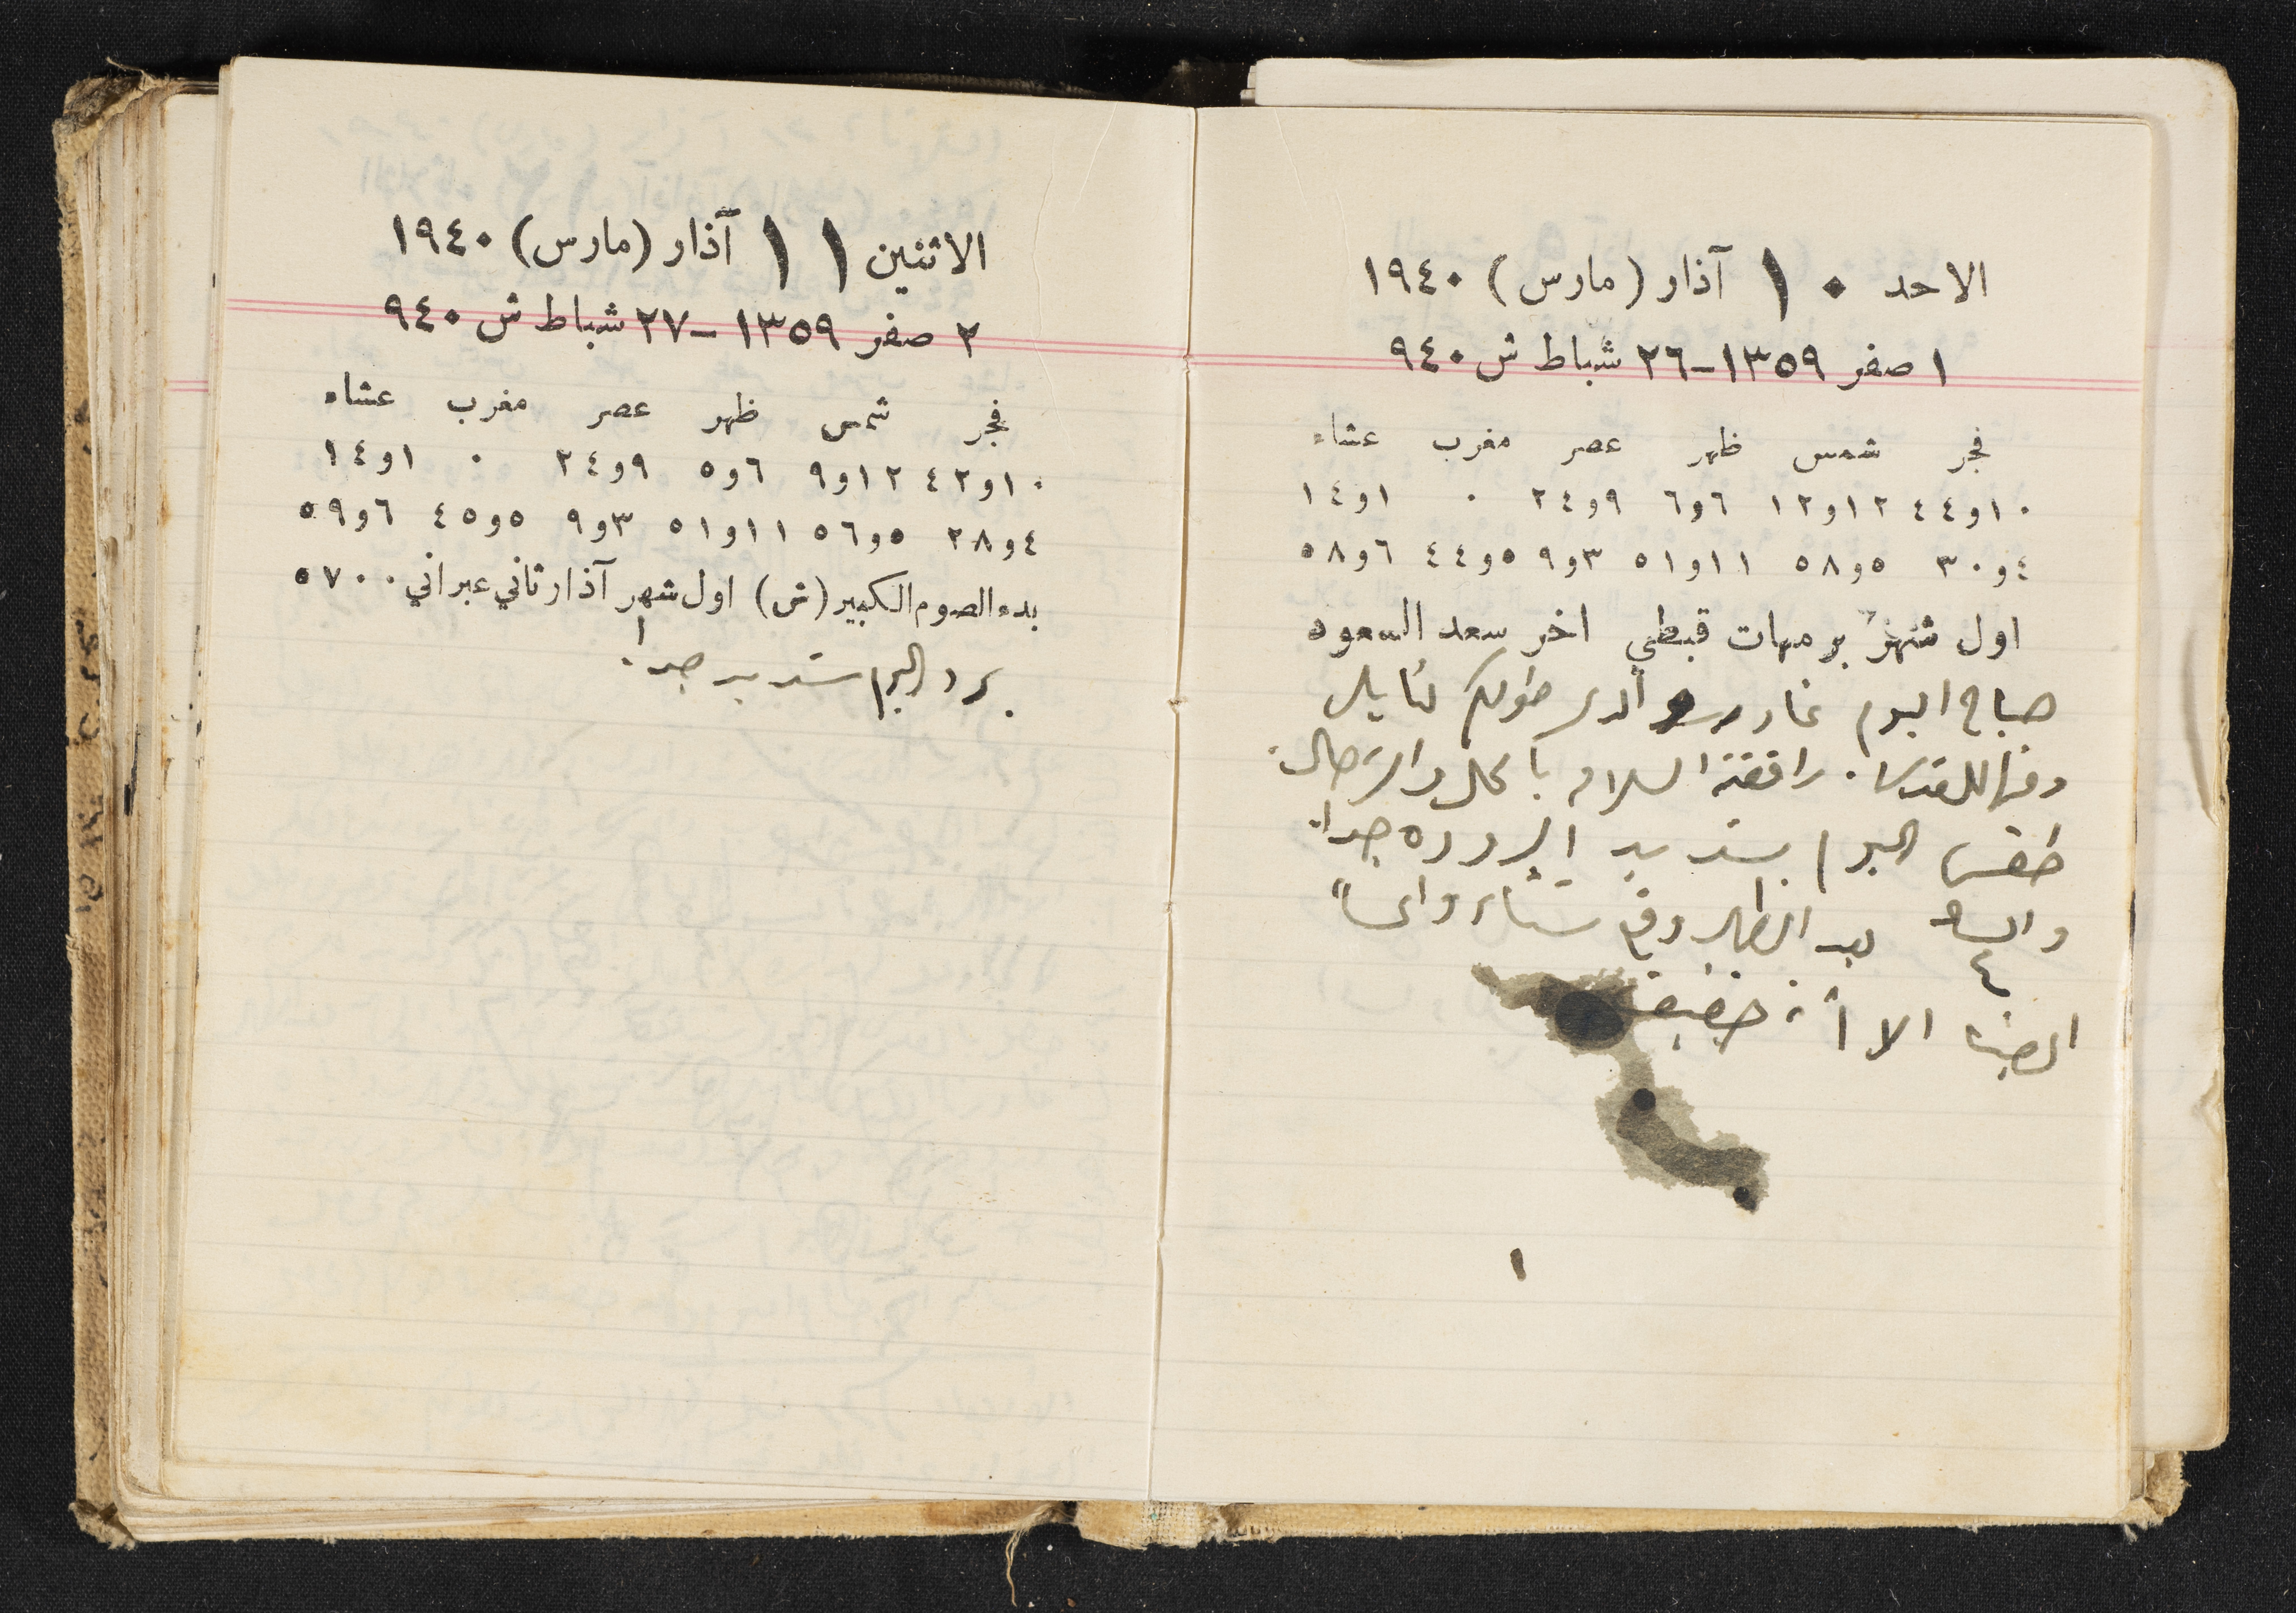 الاحد ١٠ آذار (مارس) ١٩٤٠
١ صفر ١٣٥٩-٢٦ شباط ش ٩٤٠
فجر شمس ظهر عصر مغرب عشاء
١٠و٤٤ ١٢و١٢ ٦و٦ ٩و٢٤ ٠ ١و١٤
٤و٣٠ ٥و٥٨ ١١و٥١ ٣و٩ ٥و٤٤ ٦و٥٨
اول شهر برمهات قبطي اخر سعد السعود
صباح اليوم غادر طولكم
للقدس. رافقته السلامه بالحل والترحال.
طقس اليوم شديد البروده جدا.
والساعة ٤ بعد الظهر وقع شتاء
الا انه خفيف
١
الاثنين ١١ آذار (مارس) ١٩٤٠
٢ صفر ١٣٥٩-٢٧ شباط ش ٩٤٠
فجر شمس ظهر عصر مغرب عشاء
١٠و٤٢ ١٢و٩ ٦و٥ ٩و٢٤ ٠ ١و١٤
٤و٢٨ ٥و٥٦ ١١و٥١ ٣و٩ ٥و٤٥ ٦و٥٩
بدء الصوم الكبير (ش) اول شهر آذار ثاني عبراني ٥٧٠٠
برد اليوم شديد جدا.